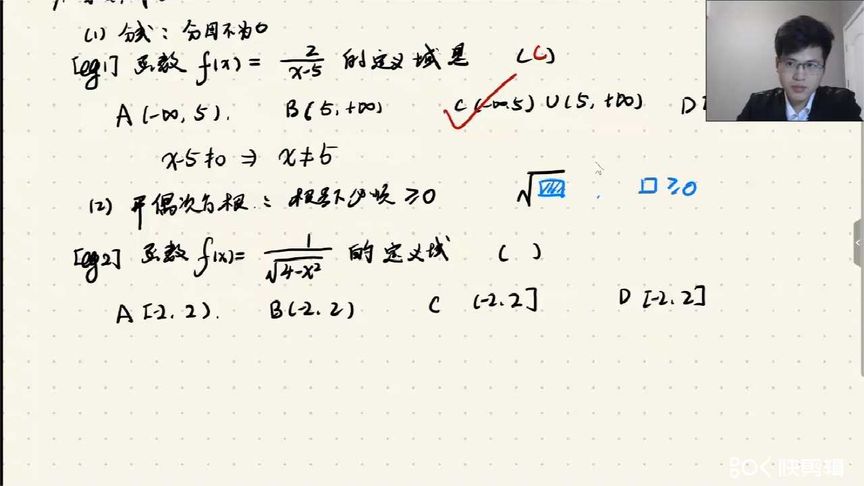 (1) 分式：分母不为0
[eg1] 函数 f(x) = 2/(x-5) 的定义域是 (C)
A (-∞, 5). B (5, +∞) C (-∞, 5) ∪ (5, +∞) D
x-5≠0 ⇒ x≠5
(2) 开偶次方根：根号下必须 ≥0 √□ . □≥0
[eg2] 函数 f(x) = 1/√(4-x²) 的定义域 ( )
A [-2, 2). B (-2, 2) C (-2, 2] D [-2, 2]
快剪辑